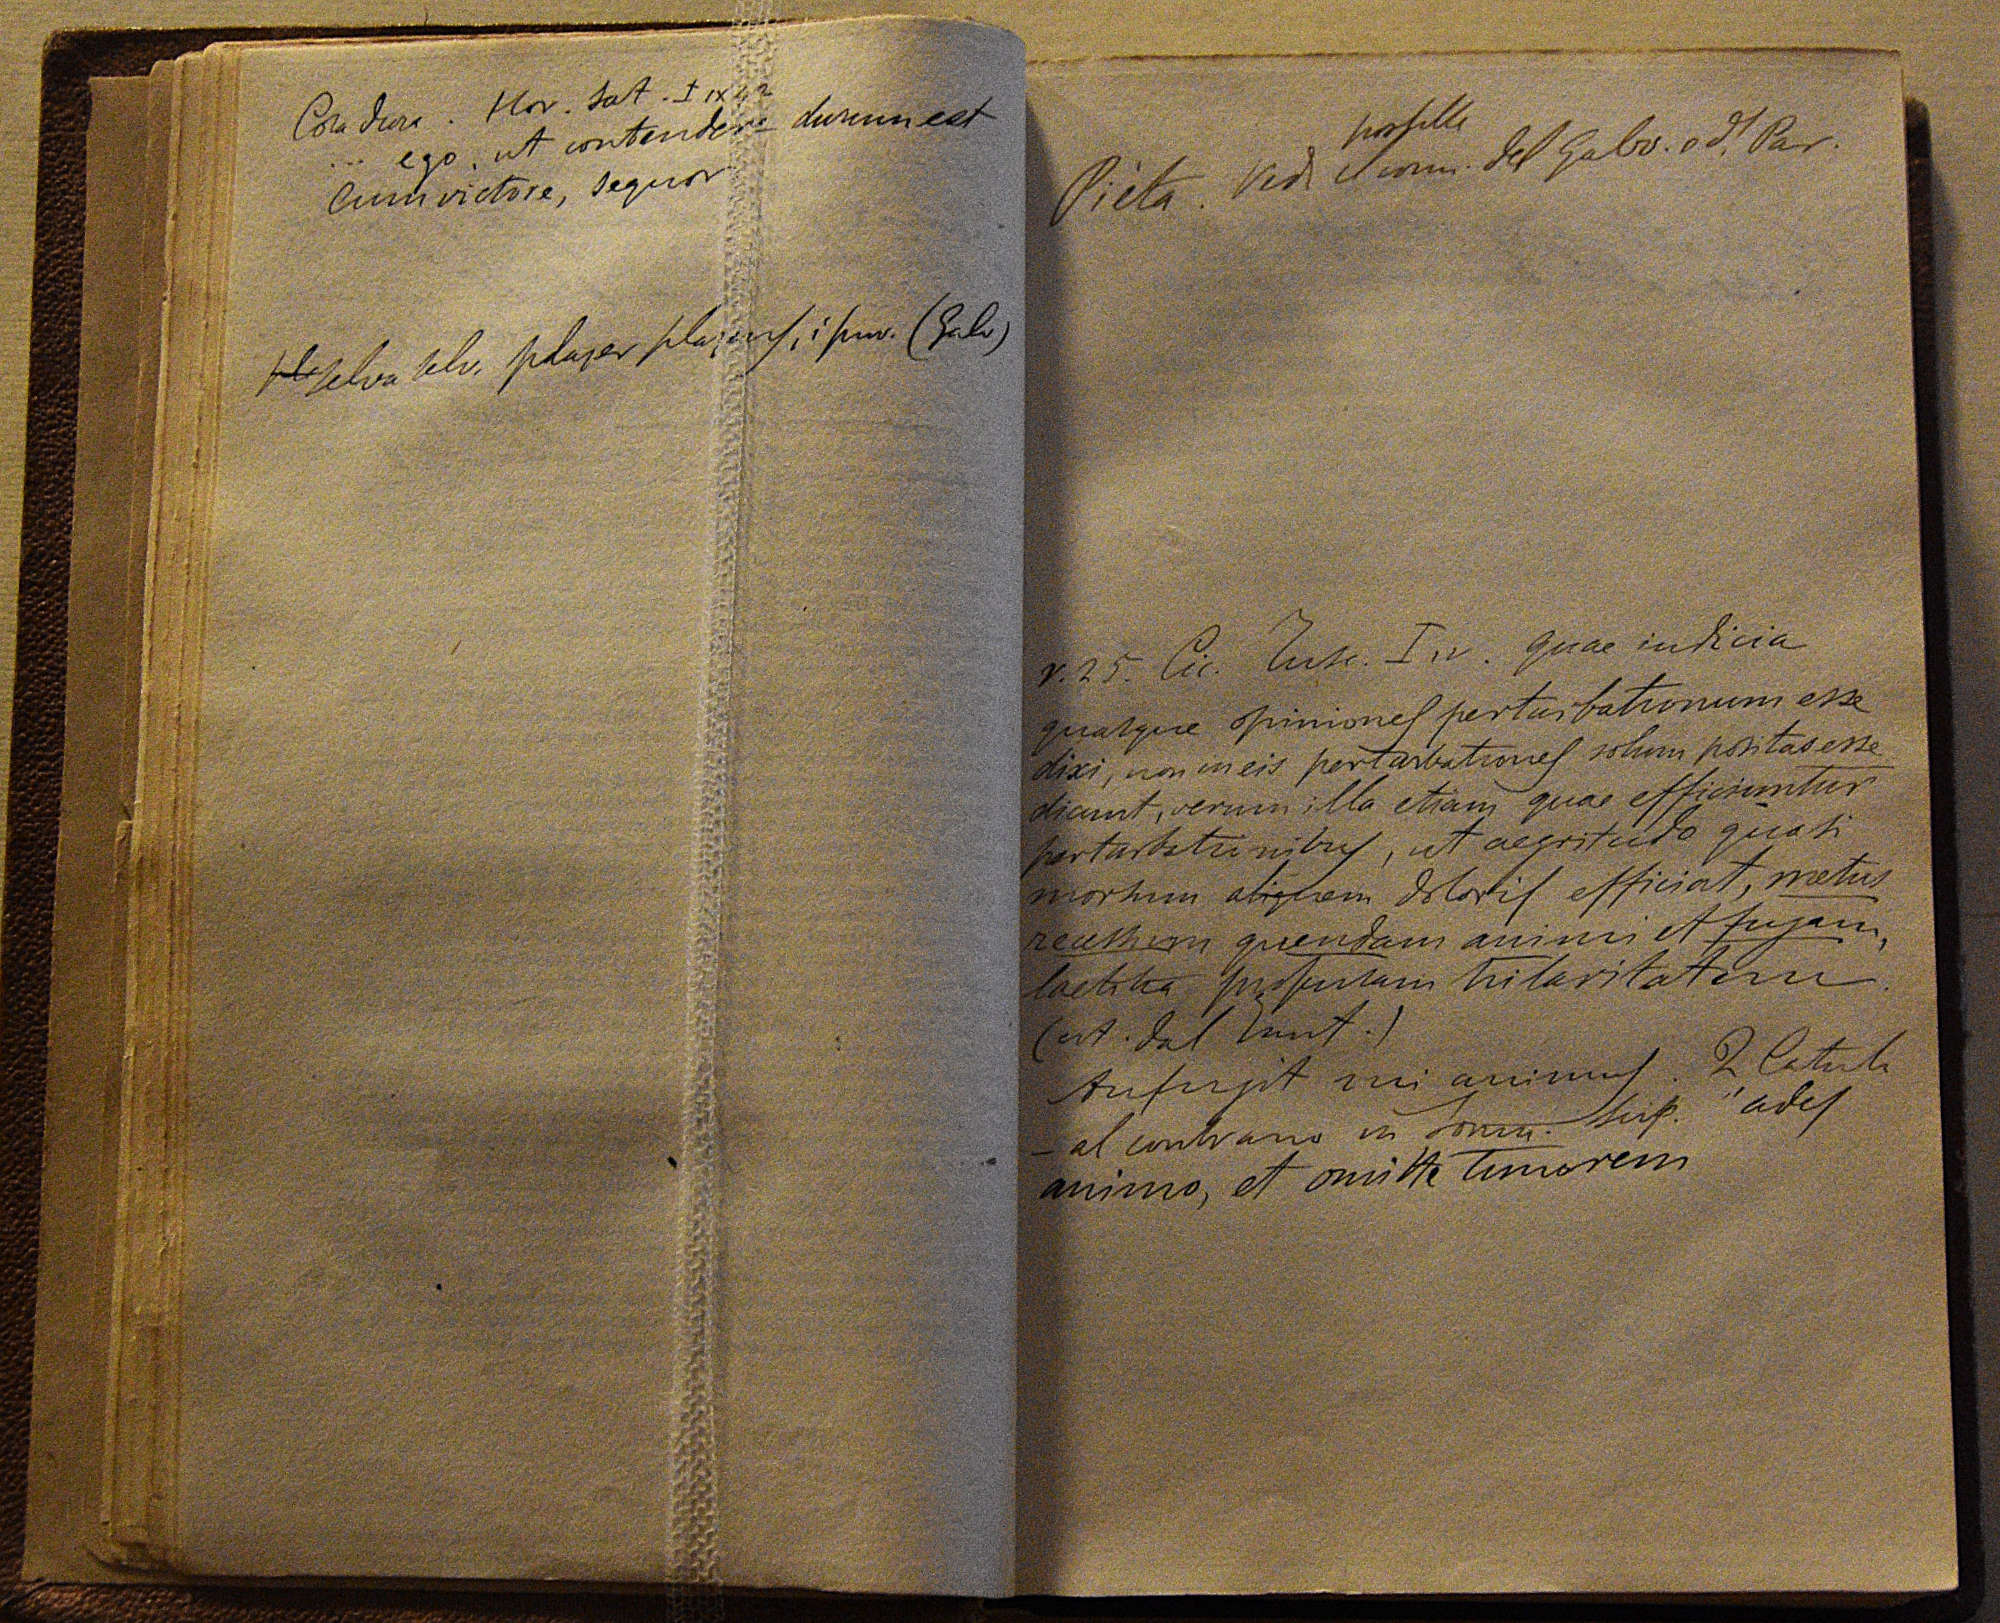 Cosa dura. Hor. Sat. I IX 42
... ego, ut contendere durum est
cum victore, sequor
selva selv. plager (Galv)
possibile
Pièta. Vedi il com. del Galv. o d. Par.
v. 25. Cic. Tusc. I IV. quae iudicia
quasque opiniones perturbationum esse
dixi, non in eis perturbationes solum positas esse
dicunt, verum illa etiam quae efficiuntur
perturbationibus, ut aegritudo quasi
morsum aliquem doloris efficiat, metus
recessum quendam animi et fugam,
laetitia profusam hilaritatem.
(cit. dal
Aufugit mi animus. Q Catulo
- al contrario in Somn. Scip. "ades
animo, et omitte timorem